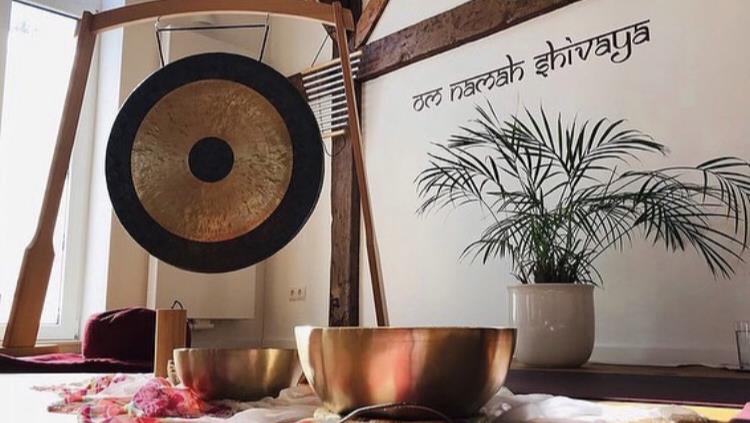 om namah shivaya